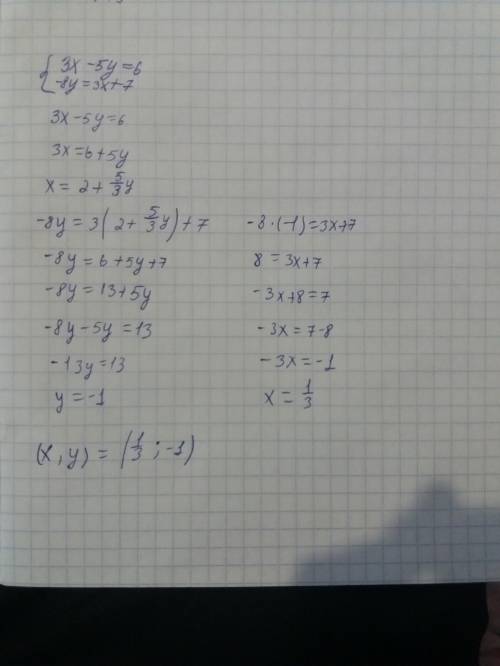 {3x-5y=6
-8y=3x+7
3x-5y=6
3x=6+5y
x=2+5/3y
-8y=3(2+5/3y)+7
-8y=6+5y+7
-8y=13+5y
-8y-5y=13
-13y=13
y=-1
-8·(-1)=3x+7
8=3x+7
-3x+8=7
-3x=7-8
-3x=-1
x=1/3
(x,y)=(1/3;-1)